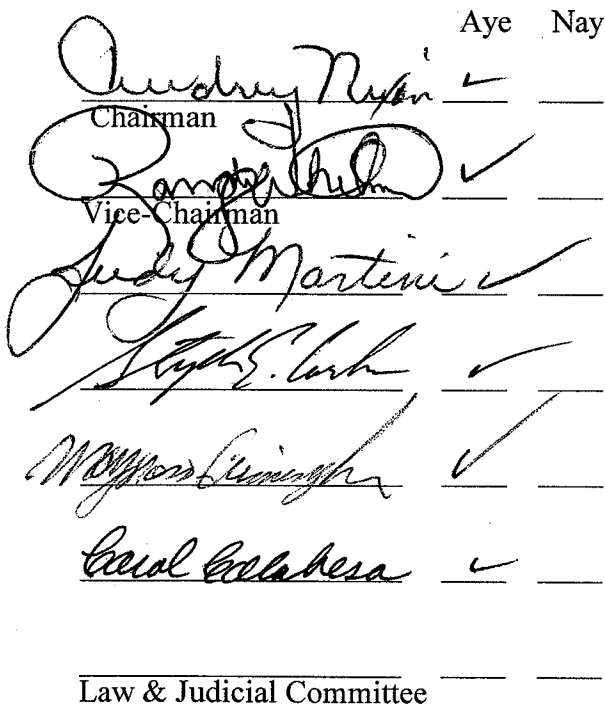 Aye Nay
Audrey Nixon ✓
Chairman
✓
Vice-Chairman
Judy Martini ✓
E. ✓
✓
Carol Calabresa ✓
Law & Judicial Committee